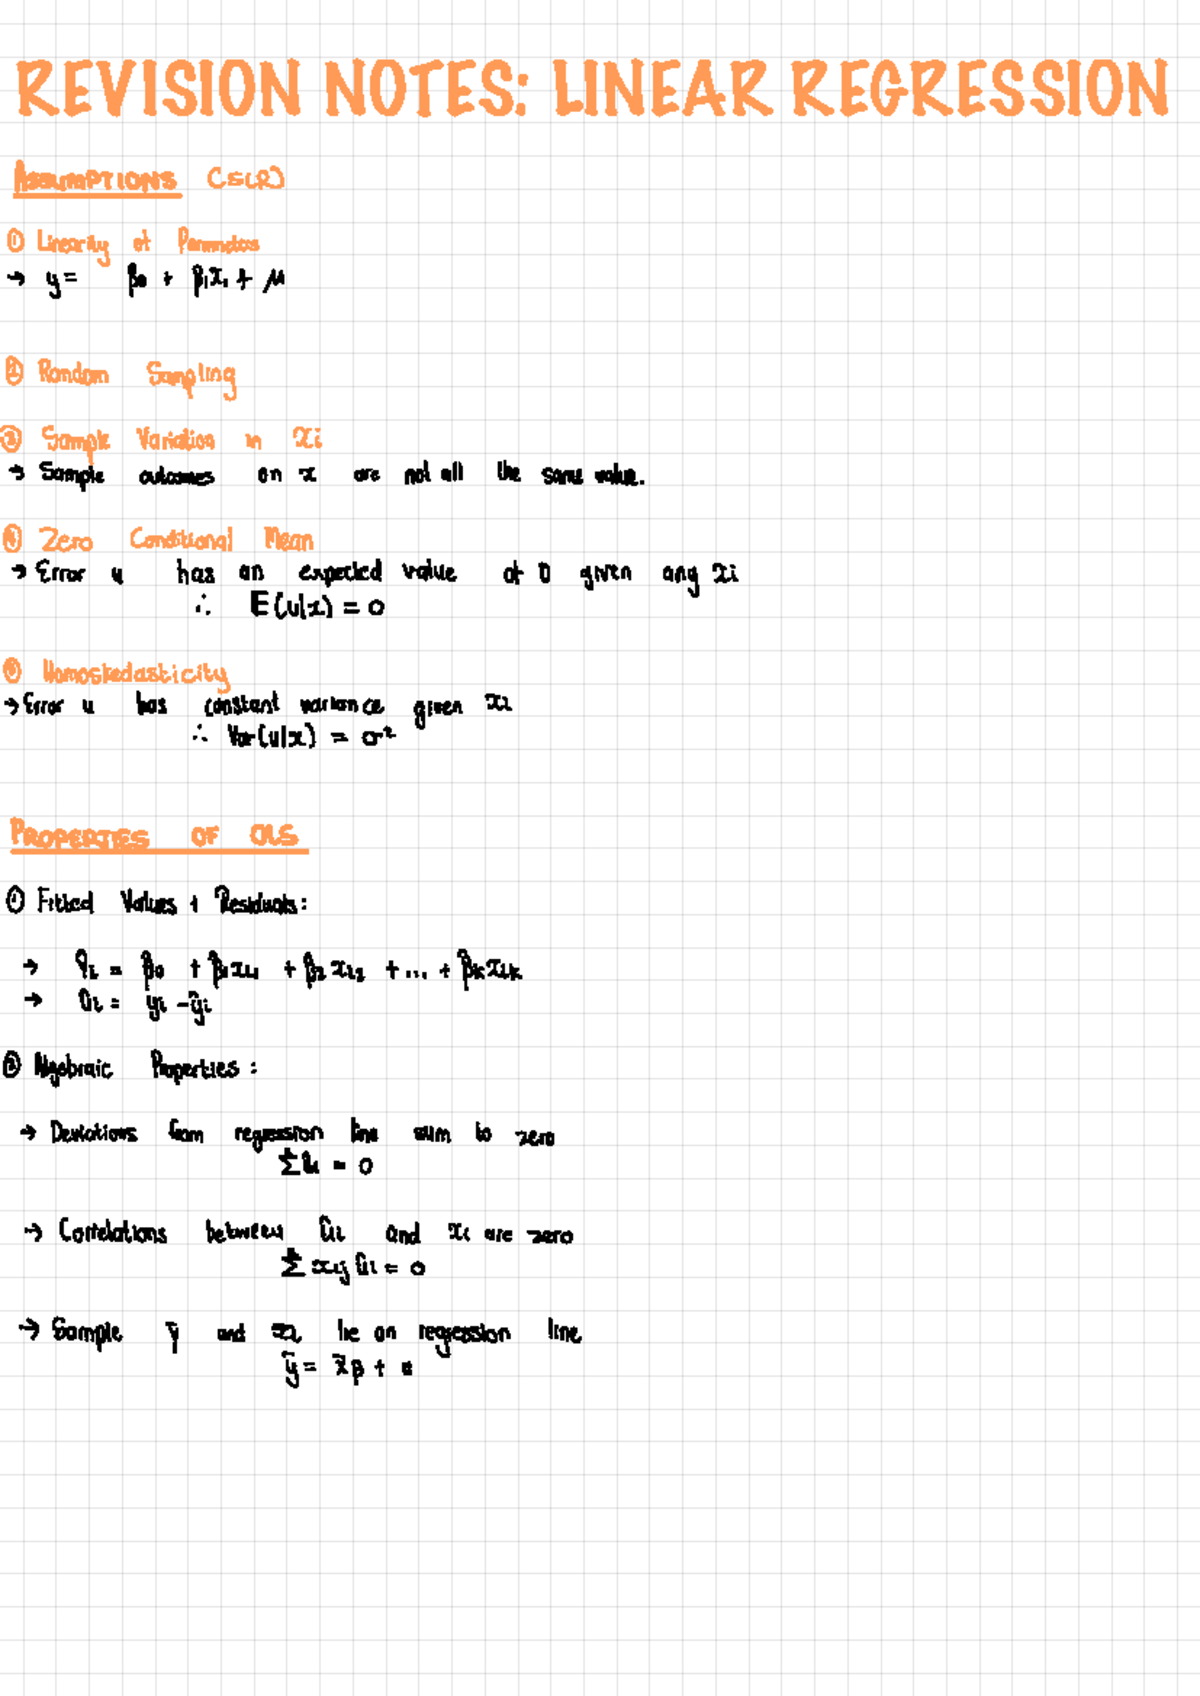 REVISION NOTES: LINEAR REGRESSION
ASSUMPTIONS (SLR)
① Linearity of Parameters
→ y = β₀ + β₁x₁ + μ
② Random Sampling
③ Sample Variation in xi
→ Sample outcomes on x are not all the same value.
④ Zero Conditional Mean
→ Error u has an expected value of 0 given any xi
∴ E(u|x) = 0
⑤ Homoskedasticity
→ Error u has constant variance given xi
∴ Var(u|x) = σ²
PROPERTIES OF OLS
① Fitted Values + Residuals:
→ ŷi = β̂₀ + β̂₁xi1 + β̂₂xi2 + ... + β̂kxik
→ ûi = yi - ŷi
② Algebraic Properties:
→ Deviations from regression line sum to zero
Σûi = 0
→ Correlations between ûi and xi are zero
Σxijûi = 0
→ Sample ȳ and x̄i lie on regression line
ȳ = x̄β +